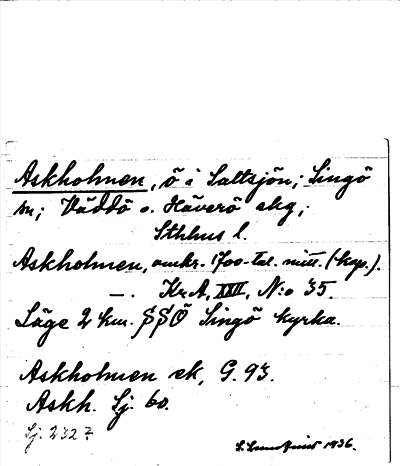 Askholmen, ö i Saltsjön; Singö
sn; Väddö o. Häverö skg;
Sthlms l.
Askholmen, omkr. 1700-tal. mitt. (kop.).
—. KrA, XXII, N:o 35.
Läge 2 km. SSÖ Singö kyrka.
Askholmen ek, G. 93.
Askh. Sj. 60.
Sj. 232 7
1936.